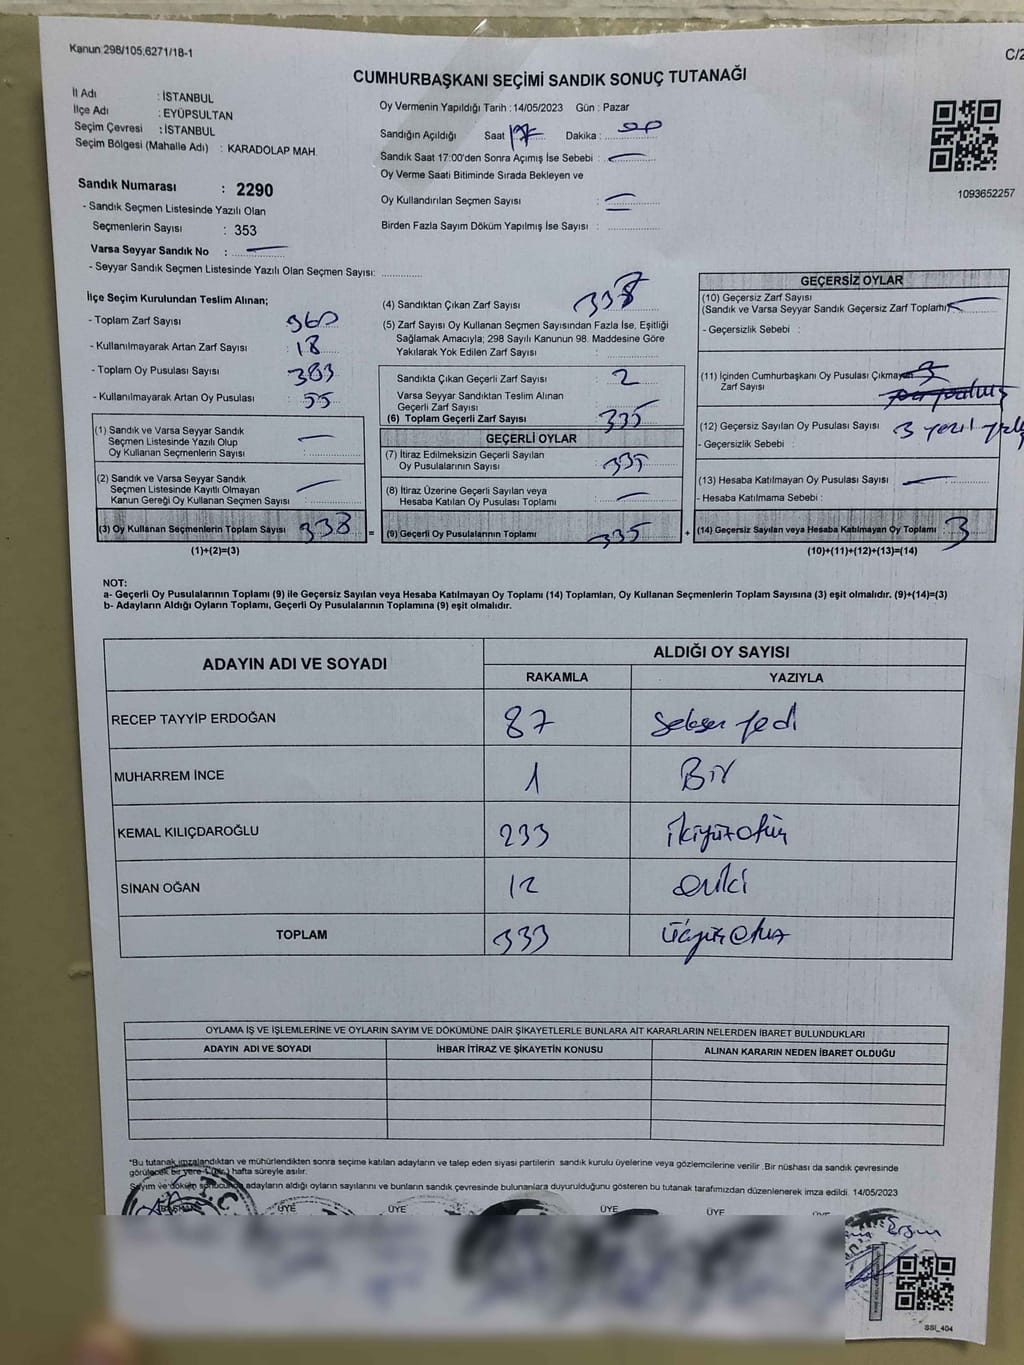 Kanun 298/105,6271/18-1
C/2
CUMHURBAŞKANI SEÇİMİ SANDIK SONUÇ TUTANAĞI
İl Adı : İSTANBUL
İlçe Adı : EYÜPSULTAN
Seçim Çevresi : İSTANBUL
Seçim Bölgesi (Mahalle Adı) : KARADOLAP MAH.
Oy Vermenin Yapıldığı Tarih : 14/05/2023 Gün : Pazar
Sandığın Açıldığı Saat 17 Dakika : 00
Sandık Saat 17:00'den Sonra Açımış İse Sebebi :
Oy Verme Saati Bitiminde Sırada Bekleyen ve
Oy Kullandırılan Seçmen Sayısı :
Birden Fazla Sayım Döküm Yapılmış İse Sayısı :
1093652257
Sandık Numarası : 2290
- Sandık Seçmen Listesinde Yazılı Olan
Seçmenlerin Sayısı : 353
Varsa Seyyar Sandık No :
- Seyyar Sandık Seçmen Listesinde Yazılı Olan Seçmen Sayısı:
İlçe Seçim Kurulundan Teslim Alınan;
- Toplam Zarf Sayısı : 360
- Kullanılmayarak Artan Zarf Sayısı : 18
- Toplam Oy Pusulası Sayısı : 383
- Kullanılmayarak Artan Oy Pusulası : 55
(1) Sandık ve Varsa Seyyar Sandık
Seçmen Listesinde Yazılı Olup
Oy Kullanan Seçmenlerin Sayısı :
(2) Sandık ve Varsa Seyyar Sandık
Seçmen Listesinde Kayıtlı Olmayan
Kanun Gereği Oy Kullanan Seçmen Sayısı :
(3) Oy Kullanan Seçmenlerin Toplam Sayısı : 338
(1)+(2)=(3)
(4) Sandıktan Çıkan Zarf Sayısı : 338
(5) Zarf Sayısı Oy Kullanan Seçmen Sayısından Fazla İse, Eşitliği
Sağlamak Amacıyla; 298 Sayılı Kanunun 98. Maddesine Göre
Yakılarak Yok Edilen Zarf Sayısı :
Sandıkta Çıkan Geçerli Zarf Sayısı : 2
Varsa Seyyar Sandıktan Teslim Alınan
Geçerli Zarf Sayısı :
(6) Toplam Geçerli Zarf Sayısı : 335
GEÇERLİ OYLAR
(7) İtiraz Edilmeksizin Geçerli Sayılan
Oy Pusulalarının Sayısı : 335
(8) İtiraz Üzerine Geçerli Sayılan veya
Hesaba Katılan Oy Pusulası Toplamı :
= (9) Geçerli Oy Pusulalarının Toplamı : 335
GEÇERSİZ OYLAR
(10) Geçersiz Zarf Sayısı
(Sandık ve Varsa Seyyar Sandık Geçersiz Zarf Toplamı)
- Geçersizlik Sebebi :
(11) İçinden Cumhurbaşkanı Oy Pusulası Çıkmayan
Zarf Sayısı
(12) Geçersiz Sayılan Oy Pusulası Sayısı : 3
- Geçersizlik Sebebi :
(13) Hesaba Katılmayan Oy Pusulası Sayısı :
- Hesaba Katılmama Sebebi :
+ (14) Geçersiz Sayılan veya Hesaba Katılmayan Oy Toplamı : 3
(10)+(11)+(12)+(13)=(14)
NOT:
a- Geçerli Oy Pusulalarının Toplamı (9) ile Geçersiz Sayılan veya Hesaba Katılmayan Oy Toplamı (14) Toplamları, Oy Kullanan Seçmenlerin Toplam Sayısına (3) eşit olmalıdır. (9)+(14)=(3)
b- Adayların Aldığı Oyların Toplamı, Geçerli Oy Pusulalarının Toplamına (9) eşit olmalıdır.
ADAYIN ADI VE SOYADI
ALDIĞI OY SAYISI
RAKAMLA YAZIYLA
RECEP TAYYİP ERDOĞAN 87 Seksen yedi
MUHARREM İNCE 1 Bir
KEMAL KILIÇDAROĞLU 233 ikiyüzotuzüç
SİNAN OĞAN 12 oniki
TOPLAM 333
OYLAMA İŞ VE İŞLEMLERİNE VE OYLARIN SAYIM VE DÖKÜMÜNE DAİR ŞİKAYETLERLE BUNLARA AİT KARARLARIN NELERDEN İBARET BULUNDUKLARI
ADAYIN ADI VE SOYADI İHBAR İTİRAZ VE ŞİKAYETİN KONUSU ALINAN KARARIN NEDEN İBARET OLDUĞU
"Bu tutanak imzalandıktan ve mühürlendikten sonra seçime katılan adayların ve talep eden siyasi partilerin sandık kurulu üyelerine veya gözlemcilerine verilir .Bir nüshası da sandık çevresinde
görülecek bir yere hafta süreyle asılır.
Sayım ve döküm sonucunda adayların aldığı oyların sayılarını ve bunların sandık çevresinde bulunanlara duyurulduğunu gösteren bu tutanak tarafımızdan düzenlenerek imza edildi. 14/05/2023
BAŞKAN ÜYE ÜYE ÜYE ÜYE
SSİ_404